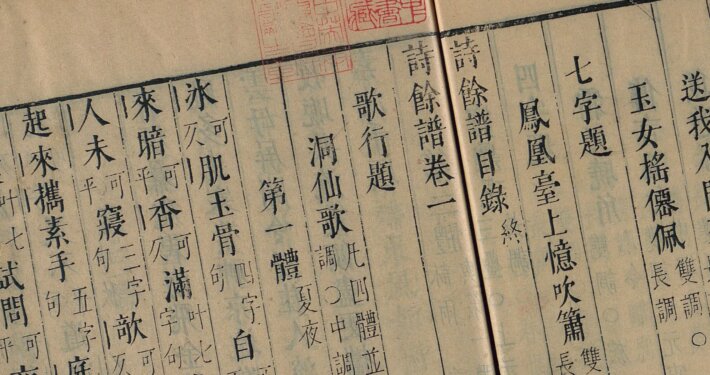 送我入
玉女搖僊佩雙調〇長調
七字題
鳳凰臺上憶吹簫雙長
詩餘譜目錄終
詩餘譜卷一
歌行題
洞仙歌凡四體並調〇中調
第一體夏夜
冰可仄肌玉骨四字句自
來暗可平香可仄滿叶七字句
人未可平寢三字句欹可仄
起來攜素手五字句庭
叶七試問可平